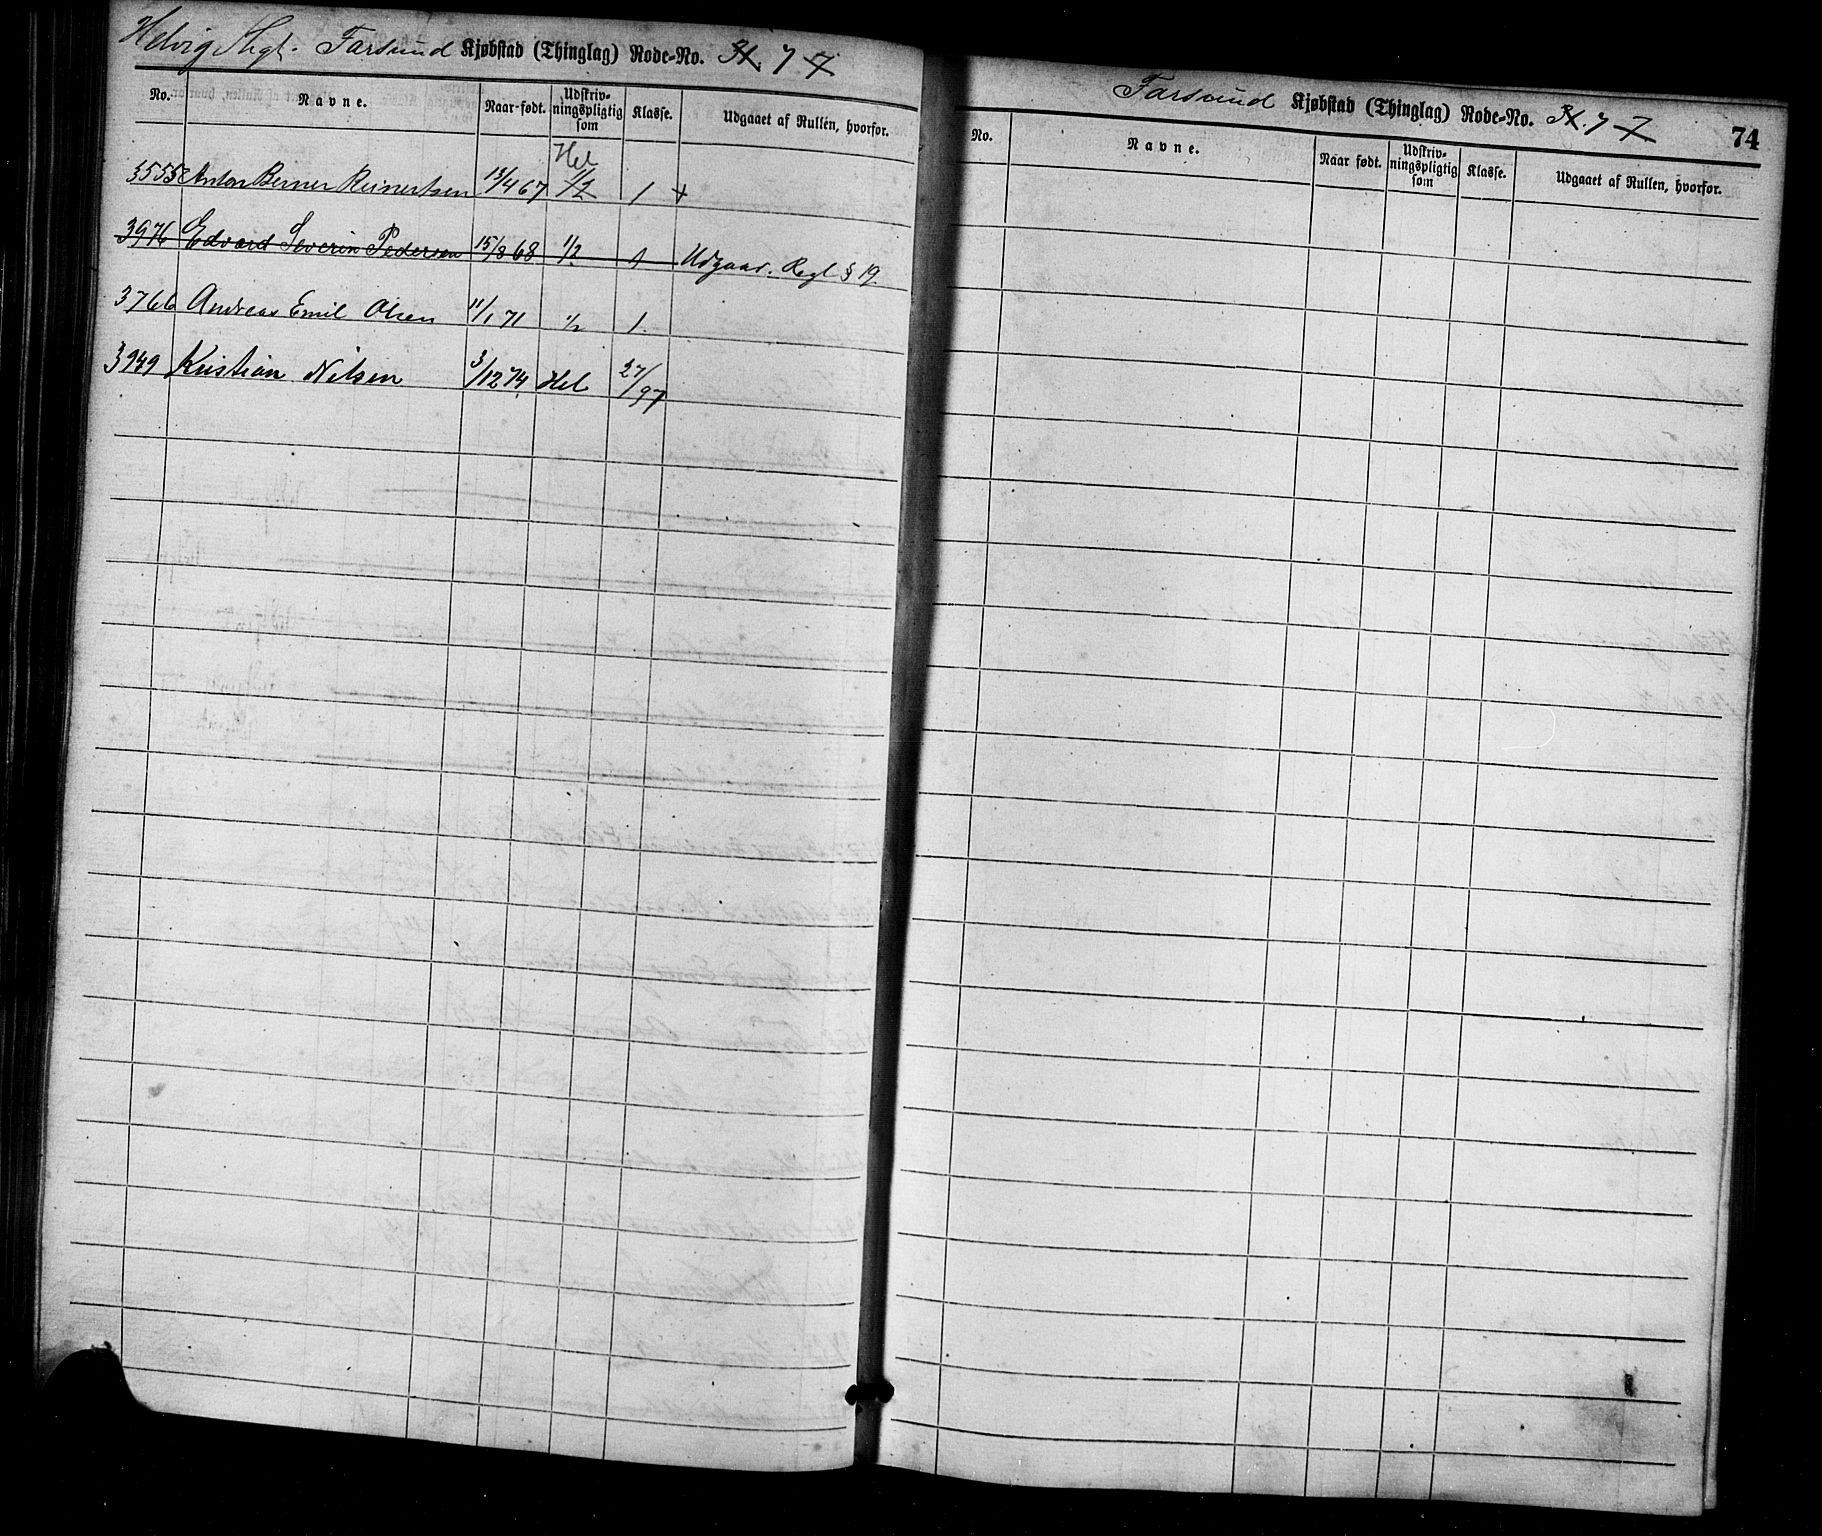 Helvig Sogl. Farsund Kjøbstad (Thinglag) Rode-No. 7 7
No. Navne. Naar-født. Udskriv-ningspligtig som Klasse. Udgaaet af Rullen, hvorfor.
Hel
3555 Anton Berner Reinertsen 13/4 67 1/2 1 +
3976 Edvard Severin Pedersen 15/8 68 1/2 1 Udgaar. Regl § 19
3766 Andreas Emil Olsen 11/1 71 1/2 1.
3949 Kristian Nilsen 3/12 74 Hel 27/97
Farsund Kjøbstad (Thinglag) Rode-No. 7 7
74
No. Navne. Naar født. Udskriv-ningspligtig som Klasse. Udgaaet af Rullen, hvorfor.